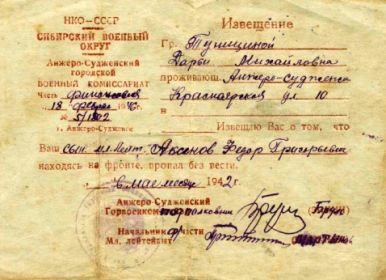 НКО—СССР
СИБИРСКИЙ ВОЕННЫЙ
ОКРУГ
Анжеро-Судженский
городской
ВОЕННЫЙ КОМИССАРИАТ
Часть финансовая
18 февр
№ 5/1802
г. Анжеро-Судженск
Извещение
Гр. Тушиной
Дарьи Михайловна
проживающ. Анжеро-Судженск
Красноярская ул 10
Извещаю Вас о том, что
Ваш сын мл. лейт. Аксенов Федор Григорьевич
находясь на фронте, пропал без вести.
в мае месяце 1942 г.
Анжеро-Судженский
Горвоенком подполковник
Начальник части
Мл. лейтенант